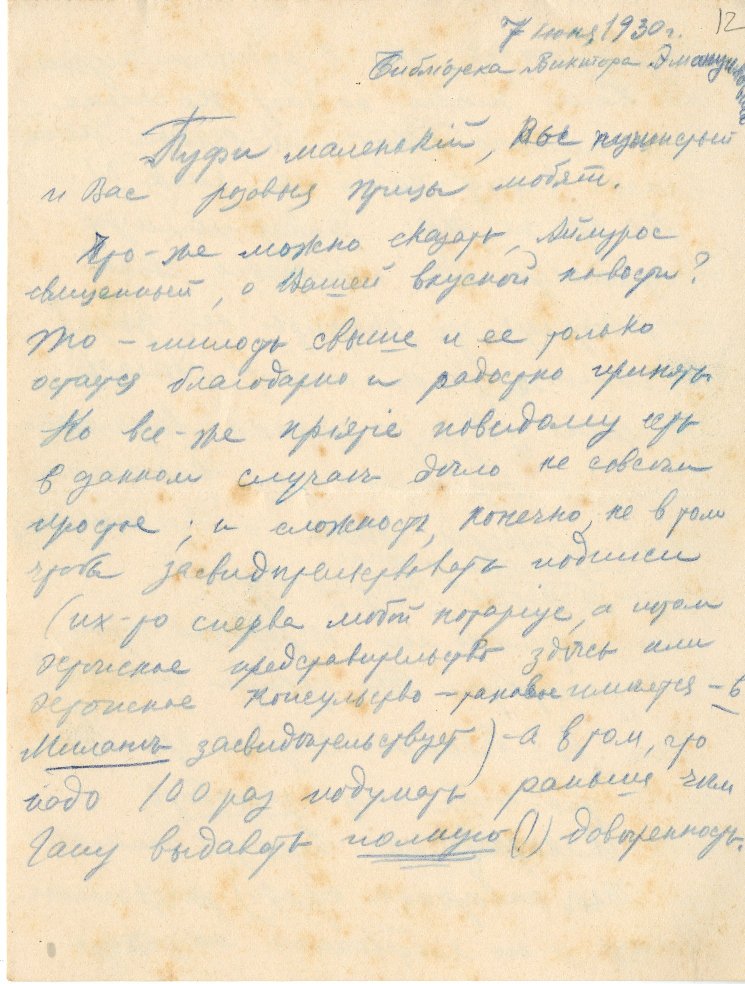 12
7 июня 1930 г.
Библіотека Виктора Эмануила
Пуфи маленькій, Вы пушистый
и Вас розовыя птицы любят.
Что-же можно сказать,
священный, о Вашей вкусной новости?
Это – милость свыше и ее только
остается благодарно и радостно принять
Но все-же пріятіе повидимому есть
в данном случаѣ дѣло не совсѣм
простое; и сложность, конечно, не в том
чтобы засвидѣтельствовать подписи
(их-то сперва любой нотаріус, а потом
эстонское представительство здѣсь или
эстонское консульство – таковое имѣется – в
Миланѣ засвидѣтельствует) – а в том, что
надо 100 раз подумать раньше чѣм
Гану выдавать полную (!) довѣренность.